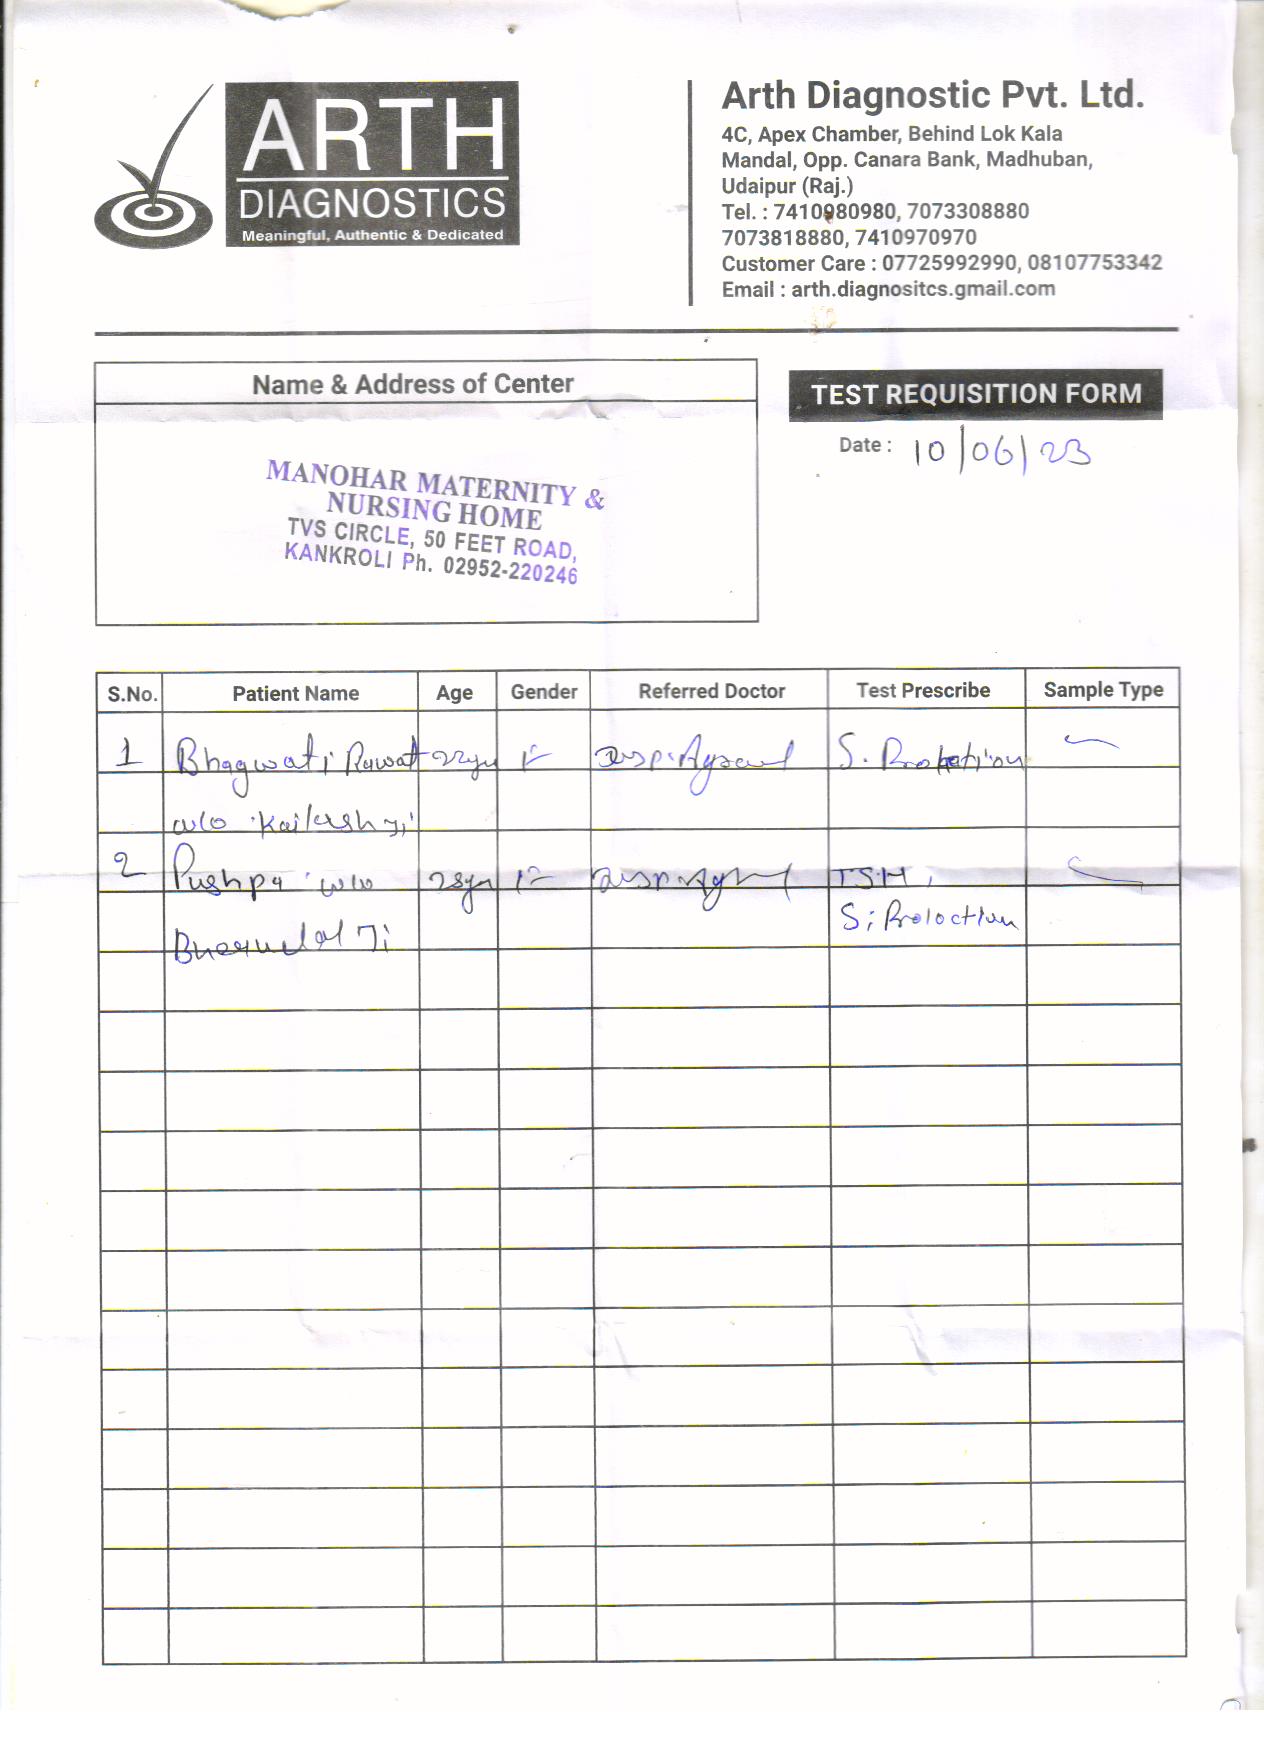 ARTH
DIAGNOSTICS
Meaningful, Authentic & Dedicated
Arth Diagnostic Pvt. Ltd.
4C, Apex Chamber, Behind Lok Kala
Mandal, Opp. Canara Bank, Madhuban,
Udaipur (Raj.)
Tel. : 7410980980, 7073308880
7073818880, 7410970970
Customer Care : 07725992990, 08107753342
Email : arth.diagnositcs.gmail.com
Name & Address of Center
MANOHAR MATERNITY &
NURSING HOME
TVS CIRCLE, 50 FEET ROAD,
KANKROLI Ph. 02952-220246
TEST REQUISITION FORM
Date : 10/06/23
S.No. Patient Name Age Gender Referred Doctor Test Prescribe Sample Type
1 Bhagwati Rawat 22yr F S.
w/o Kailash ji
2 Pushpa w/o 28yr F TSH,
Ji S; Prolaction